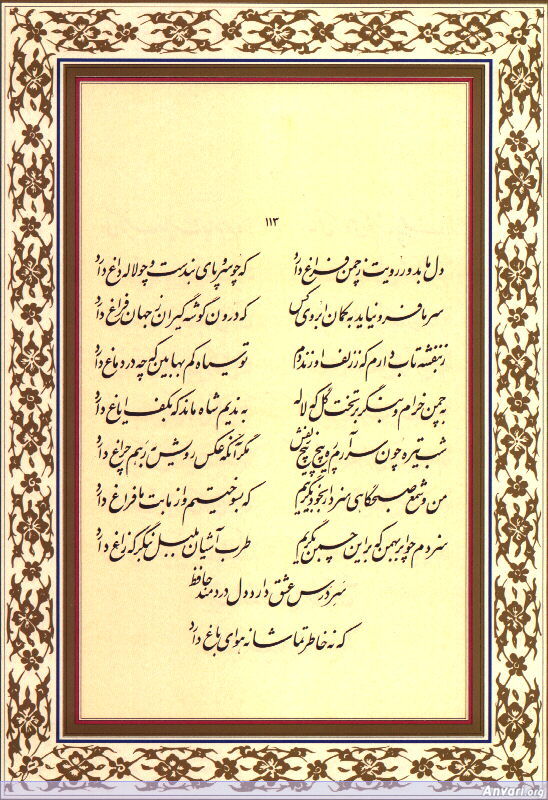 ۱۱۳
دل ما بدور رویت ز چمن فراغ دارد که چو سرو پای بندست و چو لاله داغ دارد
سر ما فرو نیاید به کمان ابروی کس که درون گوشه گیران ز جهان فراغ دارد
ز بنفشه تاب دارم که ز زلف او زند دم تو سیاه کم بها بین که چه در دماغ دارد
به چمن خرام و بنگر بر تخت گل که لاله به ندیم شاه ماند که بکف ایاغ دارد
شب تیره چون سر آرم ره پیچ پیچ زلفش مگر آنکه عکس رویش به رهم چراغ دارد
من و شمع صبحگاهی سزد ار بخود بگرییم که بسوختیم و از ما بت ما فراغ دارد
سزدم چو ابر بهمن که بر این چمن بگریم طرب آشیان بلبل بنگر که زاغ دارد
سر درس عشق دارد دل دردمند حافظ
که نه خاطر تماشا نه هوای باغ دارد
Anvari.org